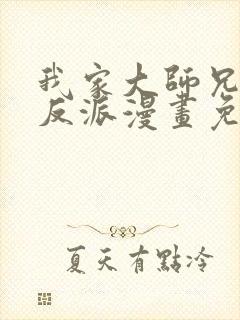 我家大師兄
反派漫畫免
夏天有點冷